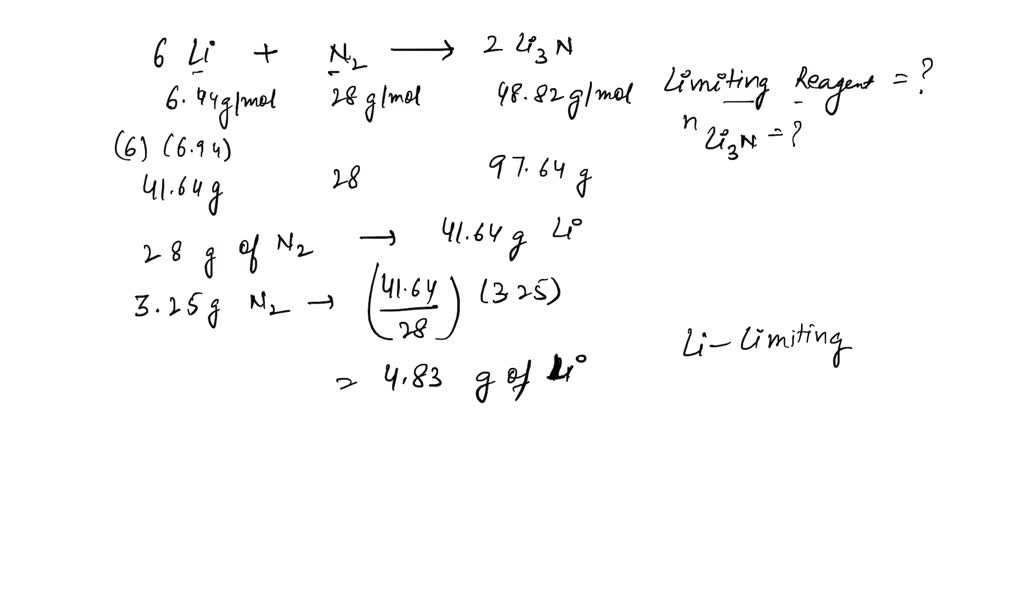 6 Li + N₂ → 2 Li₃N
6.94g/mol 28 g/mol 48.82g/mol Limiting Reagent = ?
n Li₃N = ?
(6) (6.94)
41.64 g 28 97.64 g
28 g of N₂ → 41.64 g Li
3.25g N₂ → (41.64/28) (3 25)
= 4.83 g of Li
Li - Limiting